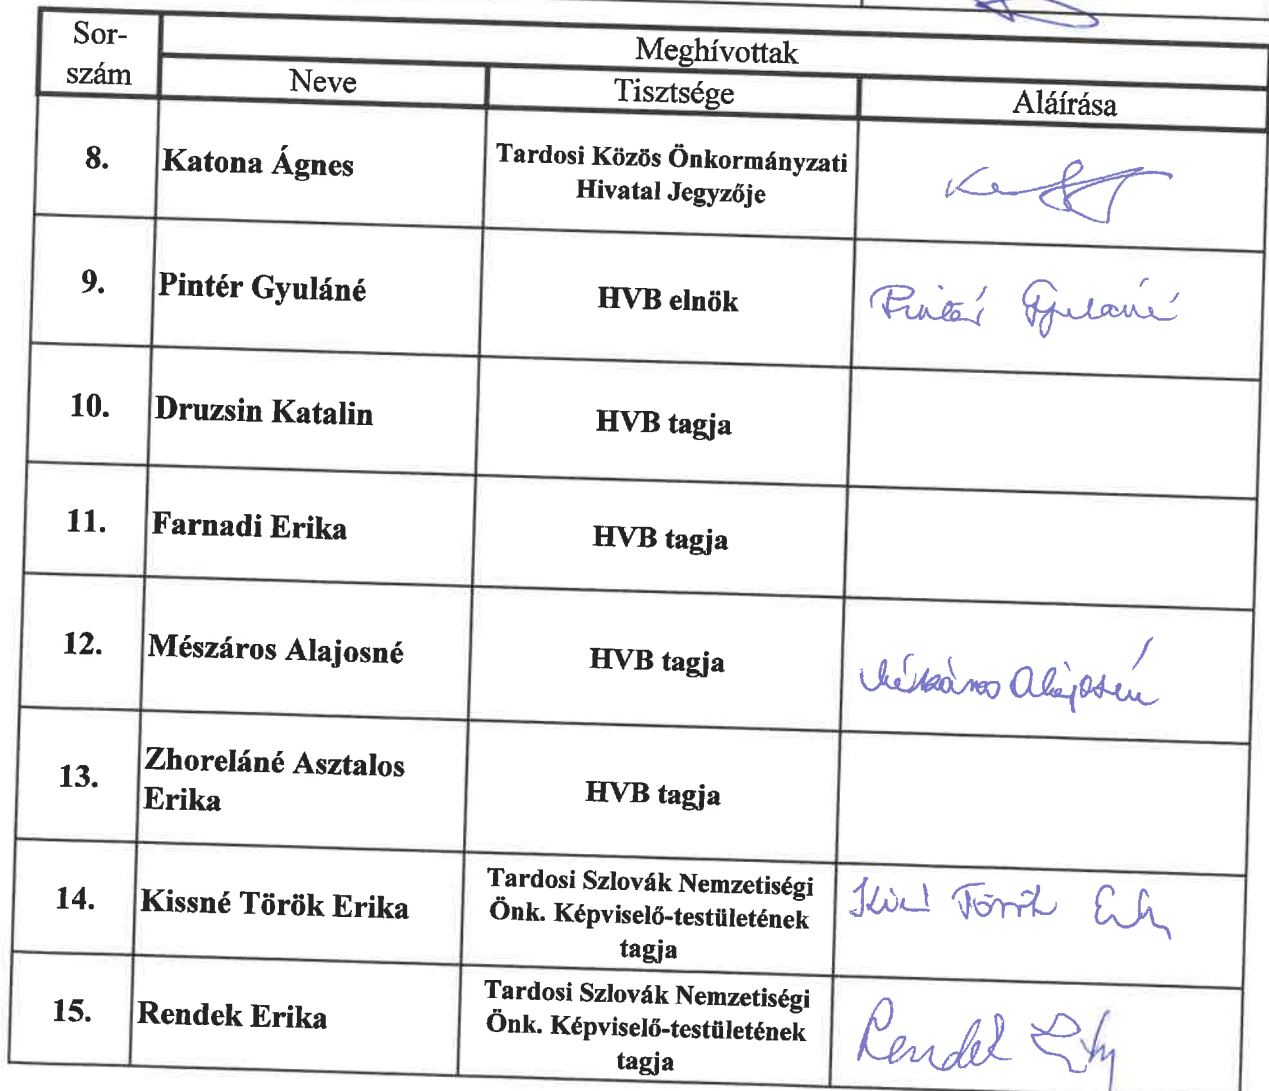 Sor-
szám
Meghívottak
Neve
Tisztsége
Aláírása
8.
Katona Ágnes
Tardosi Közös Önkormányzati
Hivatal Jegyzője
9.
Pintér Gyuláné
HVB elnök
Pintér Gyuláné
10.
Druzsin Katalin
HVB tagja
11.
Farnadi Erika
HVB tagja
12.
Mészáros Alajosné
HVB tagja
Mészáros Alajosné
13.
Zhoreláné Asztalos
Erika
HVB tagja
14.
Kissné Török Erika
Tardosi Szlovák Nemzetiségi
Önk. Képviselő-testületének
tagja
Török
15.
Rendek Erika
Tardosi Szlovák Nemzetiségi
Önk. Képviselő-testületének
tagja
Rendek